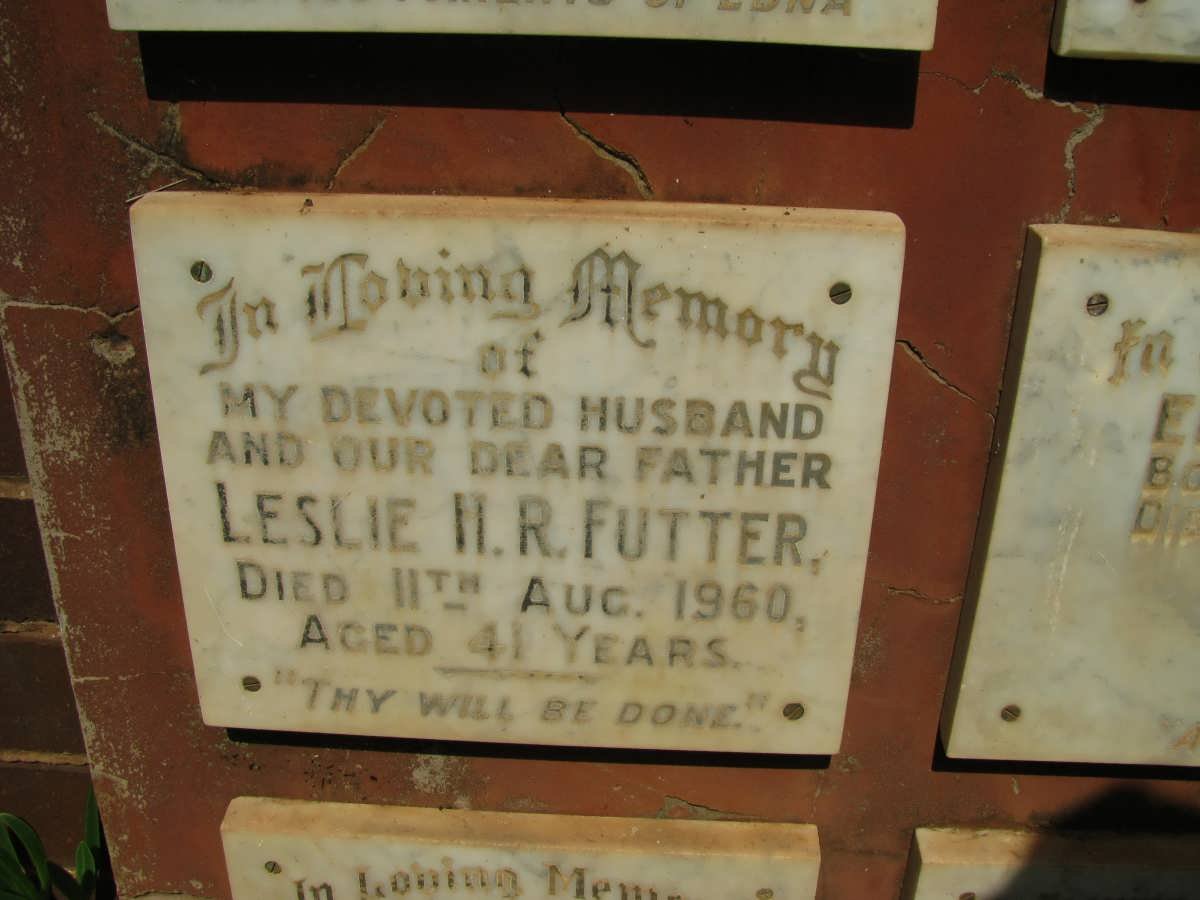 OF EDNA
In Loving Memory
of
MY DEVOTED HUSBAND
AND OUR DEAR FATHER
LESLIE H. R. FUTTER,
DIED 11TH AUG. 1960,
AGED 41 YEARS.
"THY WILL BE DONE."
In
In Loving